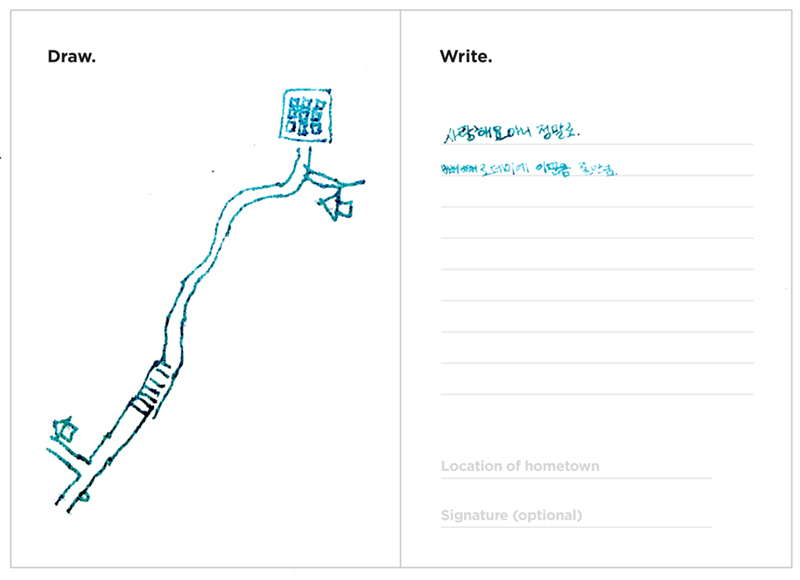 Draw.
Write.
사랑해요아니 정말로.
빼빼로데이에
Location of hometown
Signature (optional)